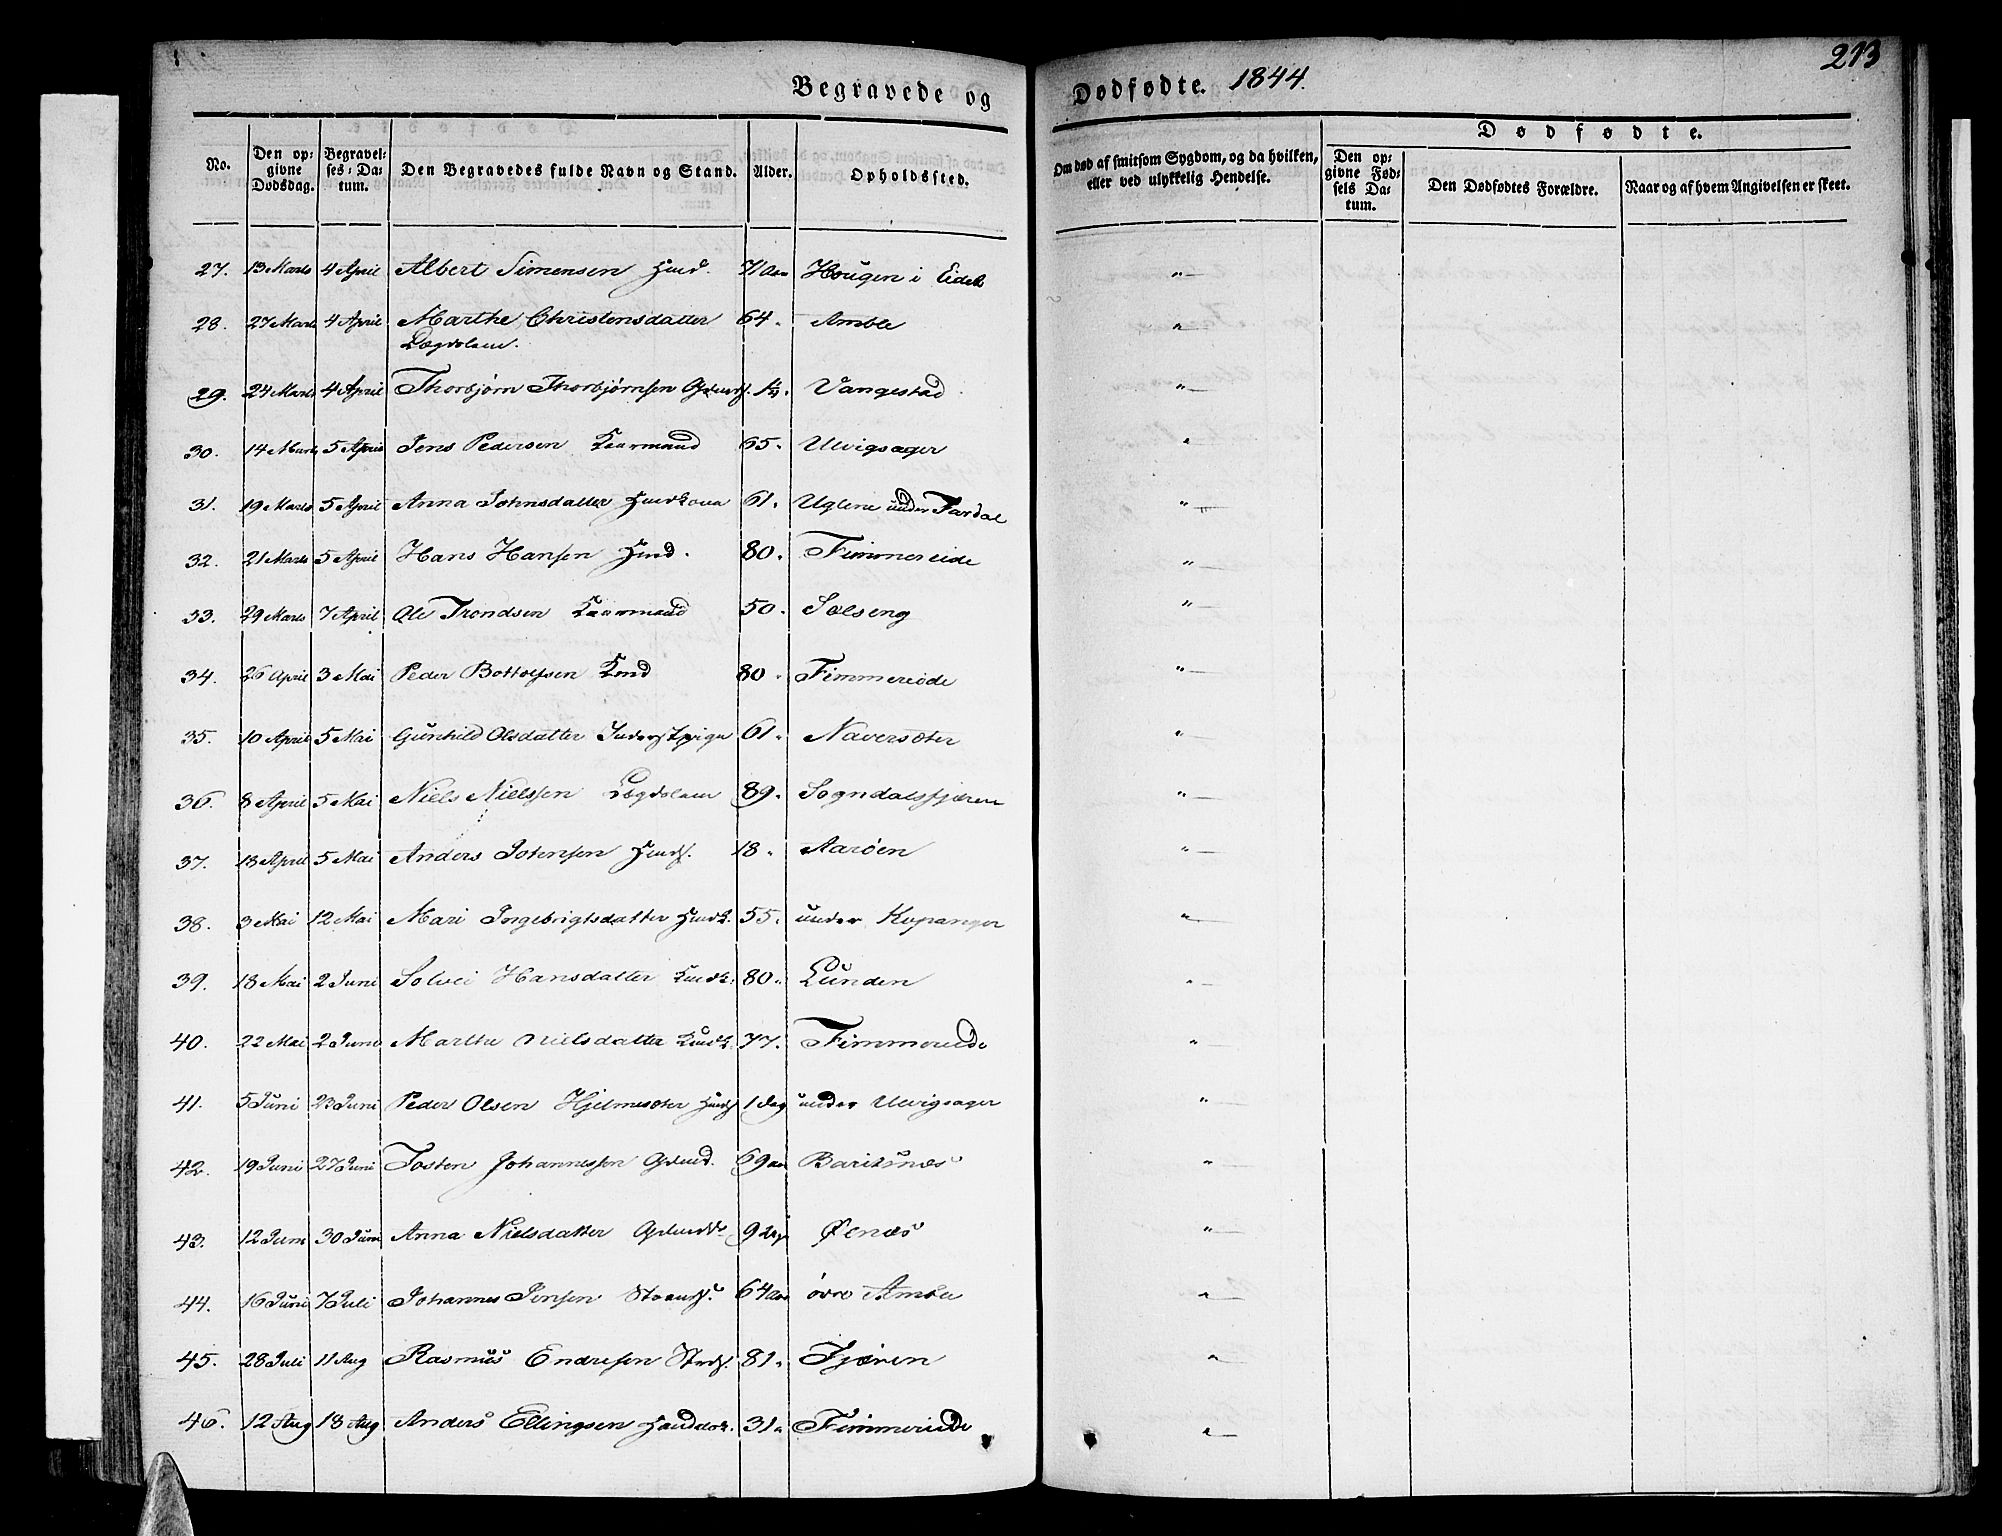 Begravede og
Dødfødte. 1844.
213
No.
Den op-
givne
Dødsdag.
Begravel-
ses-Da-
tum.
Den Begravedes fulde Navn og Stand.
Alder.
Opholdssted.
Om død af smitsom Sygdom, og da hvilken,
eller ved ulykkelig Hendelse.
Dødfødte.
Den op-
givne Fød-
sels Da-
tum.
Den Dødfødtes Forældre.
Naar og af hvem Angivelsen er skeet.
27. 13 Marts 4 April Albert Simensen Huusd. 71 Aar Hougen i Eidet "
28. 27 Marts 4 April Marthe Christensdatter 64 " Amble "
Lægdslem.
29. 24 Marts 4 April Thorbjørn Thorbjørnsen Vangestad "
30. 14 Marts 5 April Jens Pedersen Kaarmand 65 " Ulvigsager "
31. 19 Marts 5 April Anna Johnsdatter Huuskona 61 " Uglene under Fardal "
32. 21 Marts 5 April Hans Hansen 80 " Fimmereide "
33. 29 Marts 7 April Ole Trondsen Kaarmand 50 " Sælseng "
34. 26 April 3 Mai Peder Bottolfsen 80 " Fimmereide "
35. 10 April 5 Mai Gunhild Olsdatter 61 " Naversæter "
36. 8 April 5 Mai Niels Nielssen Lægdslem 89 " Sogndalsfjæren "
37. 13 April 5 Mai Anders Johnsen 18 " Aarøen "
38. 3 Mai 12 Mai Mari Ingebrigtsdatter 55 " under Kopanger "
39. 18 Mai 2 Juni Solvei Hansdatter 80 " Lunden "
40. 22 Mai 2 Juni Marthe Nielsdatter 77 " Fimmereide "
41. 5 Juni 23 Juni Peder Olsen Hjelmesæter 1 Dag under Ulvigsager "
42. 19 Juni 27 Juni Josten Johannessen 69 Aar "
43. 12 Juni 30 Juni Anna Nielsdatter Øenæs "
44. 16 Juni 7 Juli Johannes Jensen 64 Aar øvre Amble "
45. 28 Juli 11 Aug Rasmus Endresen 81 " Fjæren "
46. 12 Aug 18 Aug Anders Ellingsen 31 " Fimmereide "